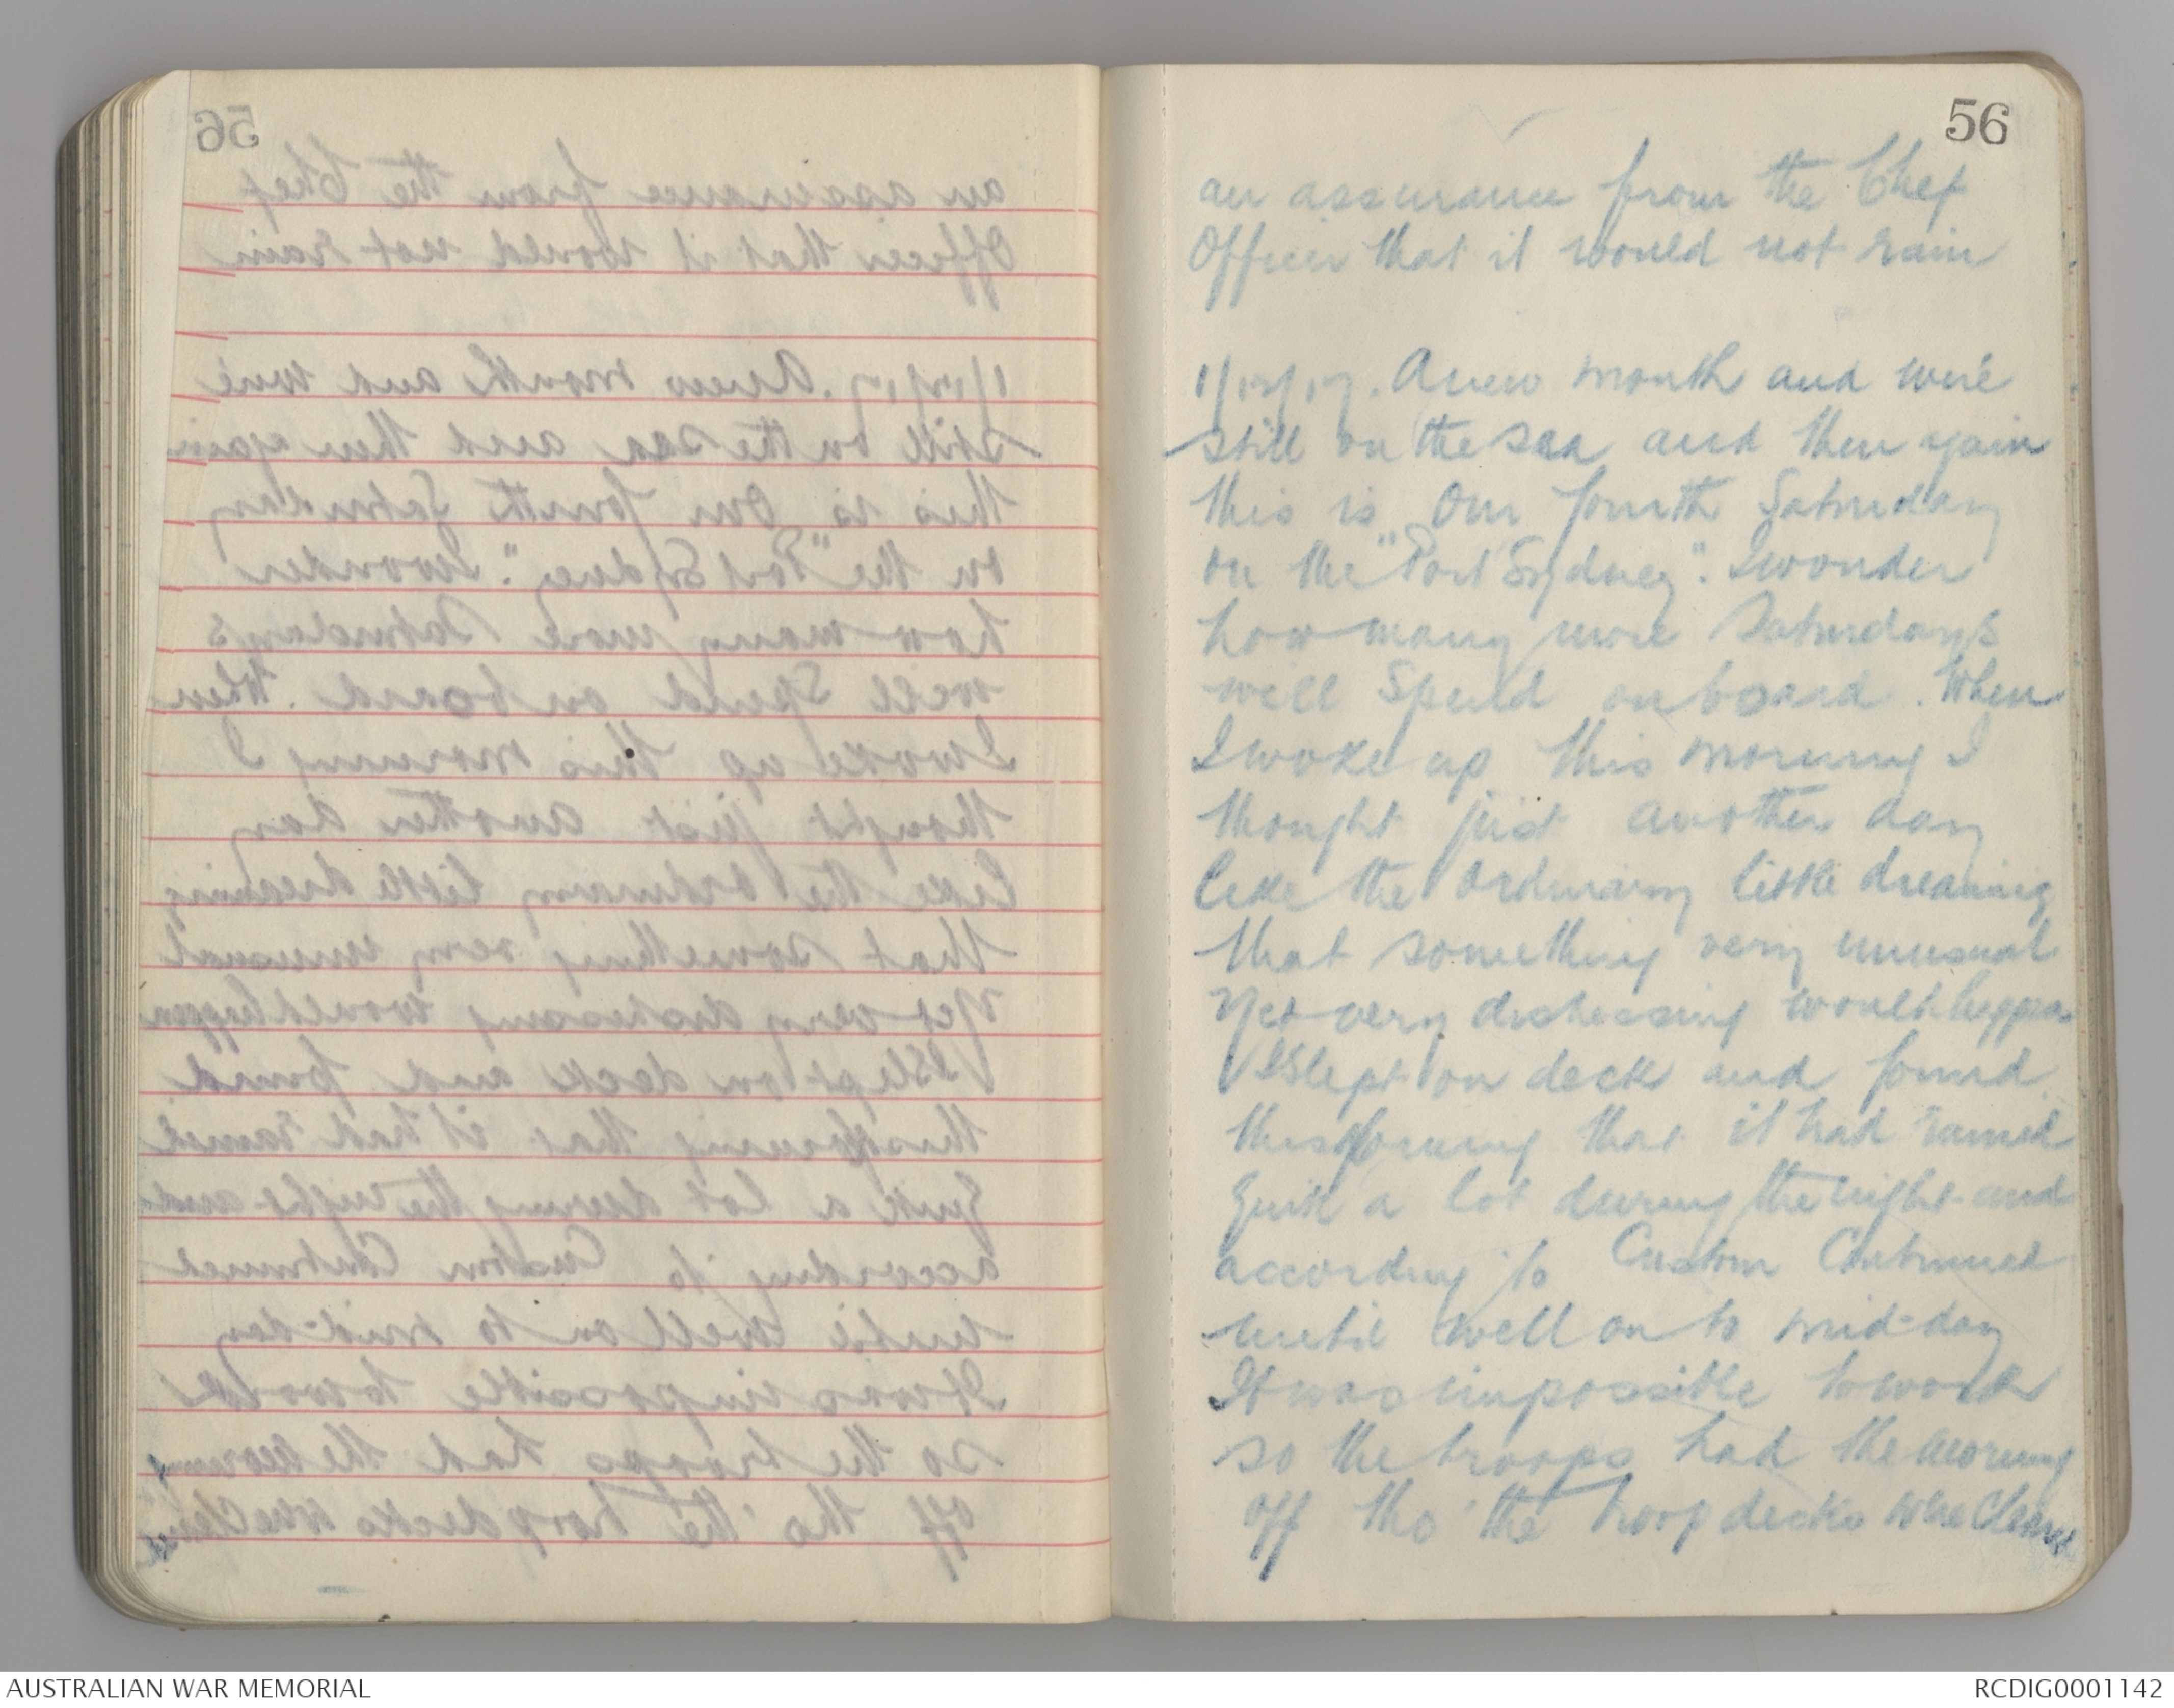 56
an assurance from the Chef
Officer that it would not rain
1/12/17. A new month and we're
still on the sea and then again
this is our fourth Saturday
on the "Port Sydney". I wonder
how many more Saturdays
will spend on board. When
I woke up this morning I
thought just another day
like the ordinary little dreaming
that something very unusual
Yet very distressing would happen
I Slept on deck and found
this Morning that it had rained
Quite a lot during the night and
according to Custom Continued
until well on to mid-day
It was impossible to work
so the troops had the morning
off tho' the troop decks were cleaned
AUSTRALIAN WAR MEMORIAL
RCDIG0001142